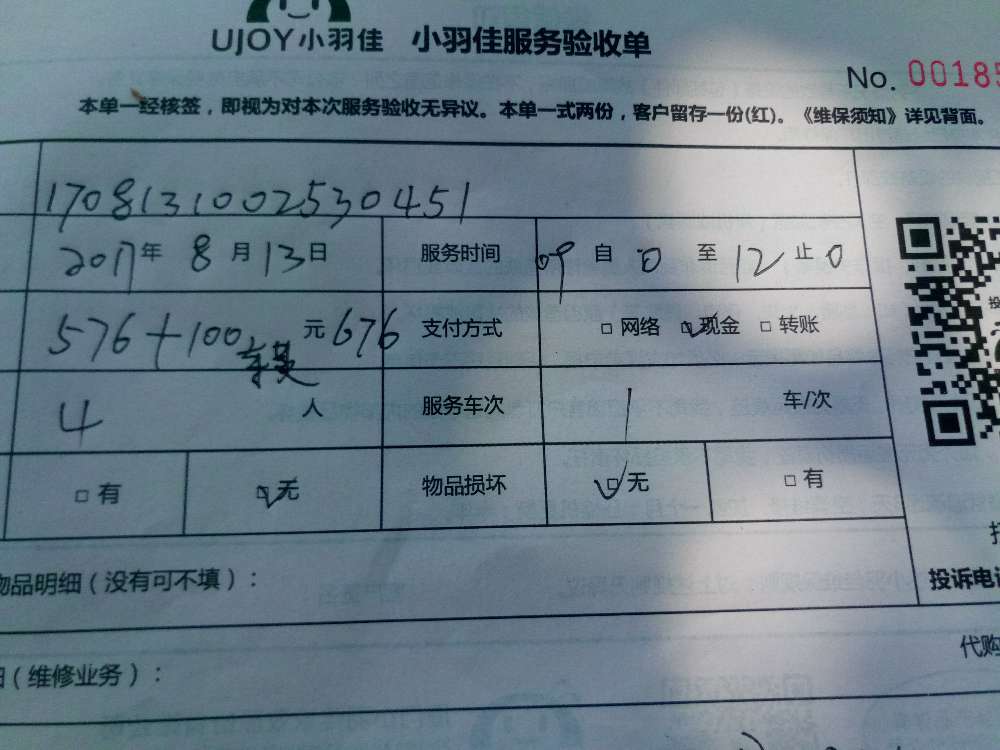 UJOY小羽佳 小羽佳服务验收单
No. 00185
本单一经核签，即视为对本次服务验收无异议。本单一式两份，客户留存一份(红)。《维保须知》详见背面。
17081310002530451
2017年 8月13日 服务时间 09 自 0 至 12 止 0
576+100 元 676 支付方式 □ 网络 ☑ 现金 □ 转账
4 人 服务车次 1 车/次
□ 有 ☑ 无 物品损坏 ☑ 无 □ 有
物品明细（没有可不填）：
投诉电
（维修业务）：
代购